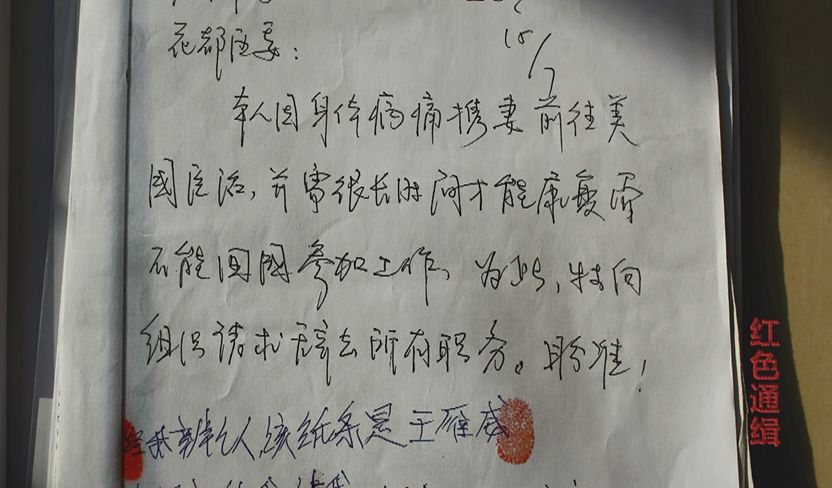 花都区委：
15/7
本人因身体病痛携妻前往美
國医治，并需很长时间才能康复而
不能回國参加工作，为此，特向
组织请求辞去所有职务。盼准！
经我辨认该纸条是王雁威
红色通缉